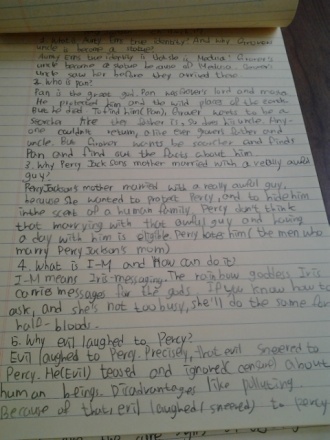 1. Who is Aunty Em's true identity? And why Grover's
uncle is become a statue?
Aunty Em's true identity is Medusa! Grover's
uncle become a statue because of Medusa. Grover's
Uncle saw her before they arrived there
2. Who is Pan?
Pan is the grove god. Pan was Grover's lord and
He protected him and the wild places of the earth
but he died. To find him (Pan), Grover wants to be a
Searcher like his father
one couldn't return, alive ever Grover's father and
uncle. But Grover wants be searcher and finds
Pan and find out the facts about him.
3. Why Percy Jackson's mother married with a really awful
guy?
Percy Jackson's mother married with a really awful guy,
because she wanted to protect Percy, and to hide him
in the scent of a human family. Percy don't think
that marrying with that awful guy and having
a day with him is eligible. Percy hates him (the men who
marry Percy Jackson's mom)
4. What is I-M and How can do it?
I-M means Iris-messaging. The rainbow goddess Iris
carries messages for the gods. If you know how to
ask, and she's not too busy, she'll do the same for
half-bloods.
5. Why evil laughed to Percy?
Evil laughed to Percy. Precisely, that evil sneered to
Percy. He(Evil) teased and ignored about
human beings. Disadvantages like polluting.
Because of that evil laughed (sneered) to percy